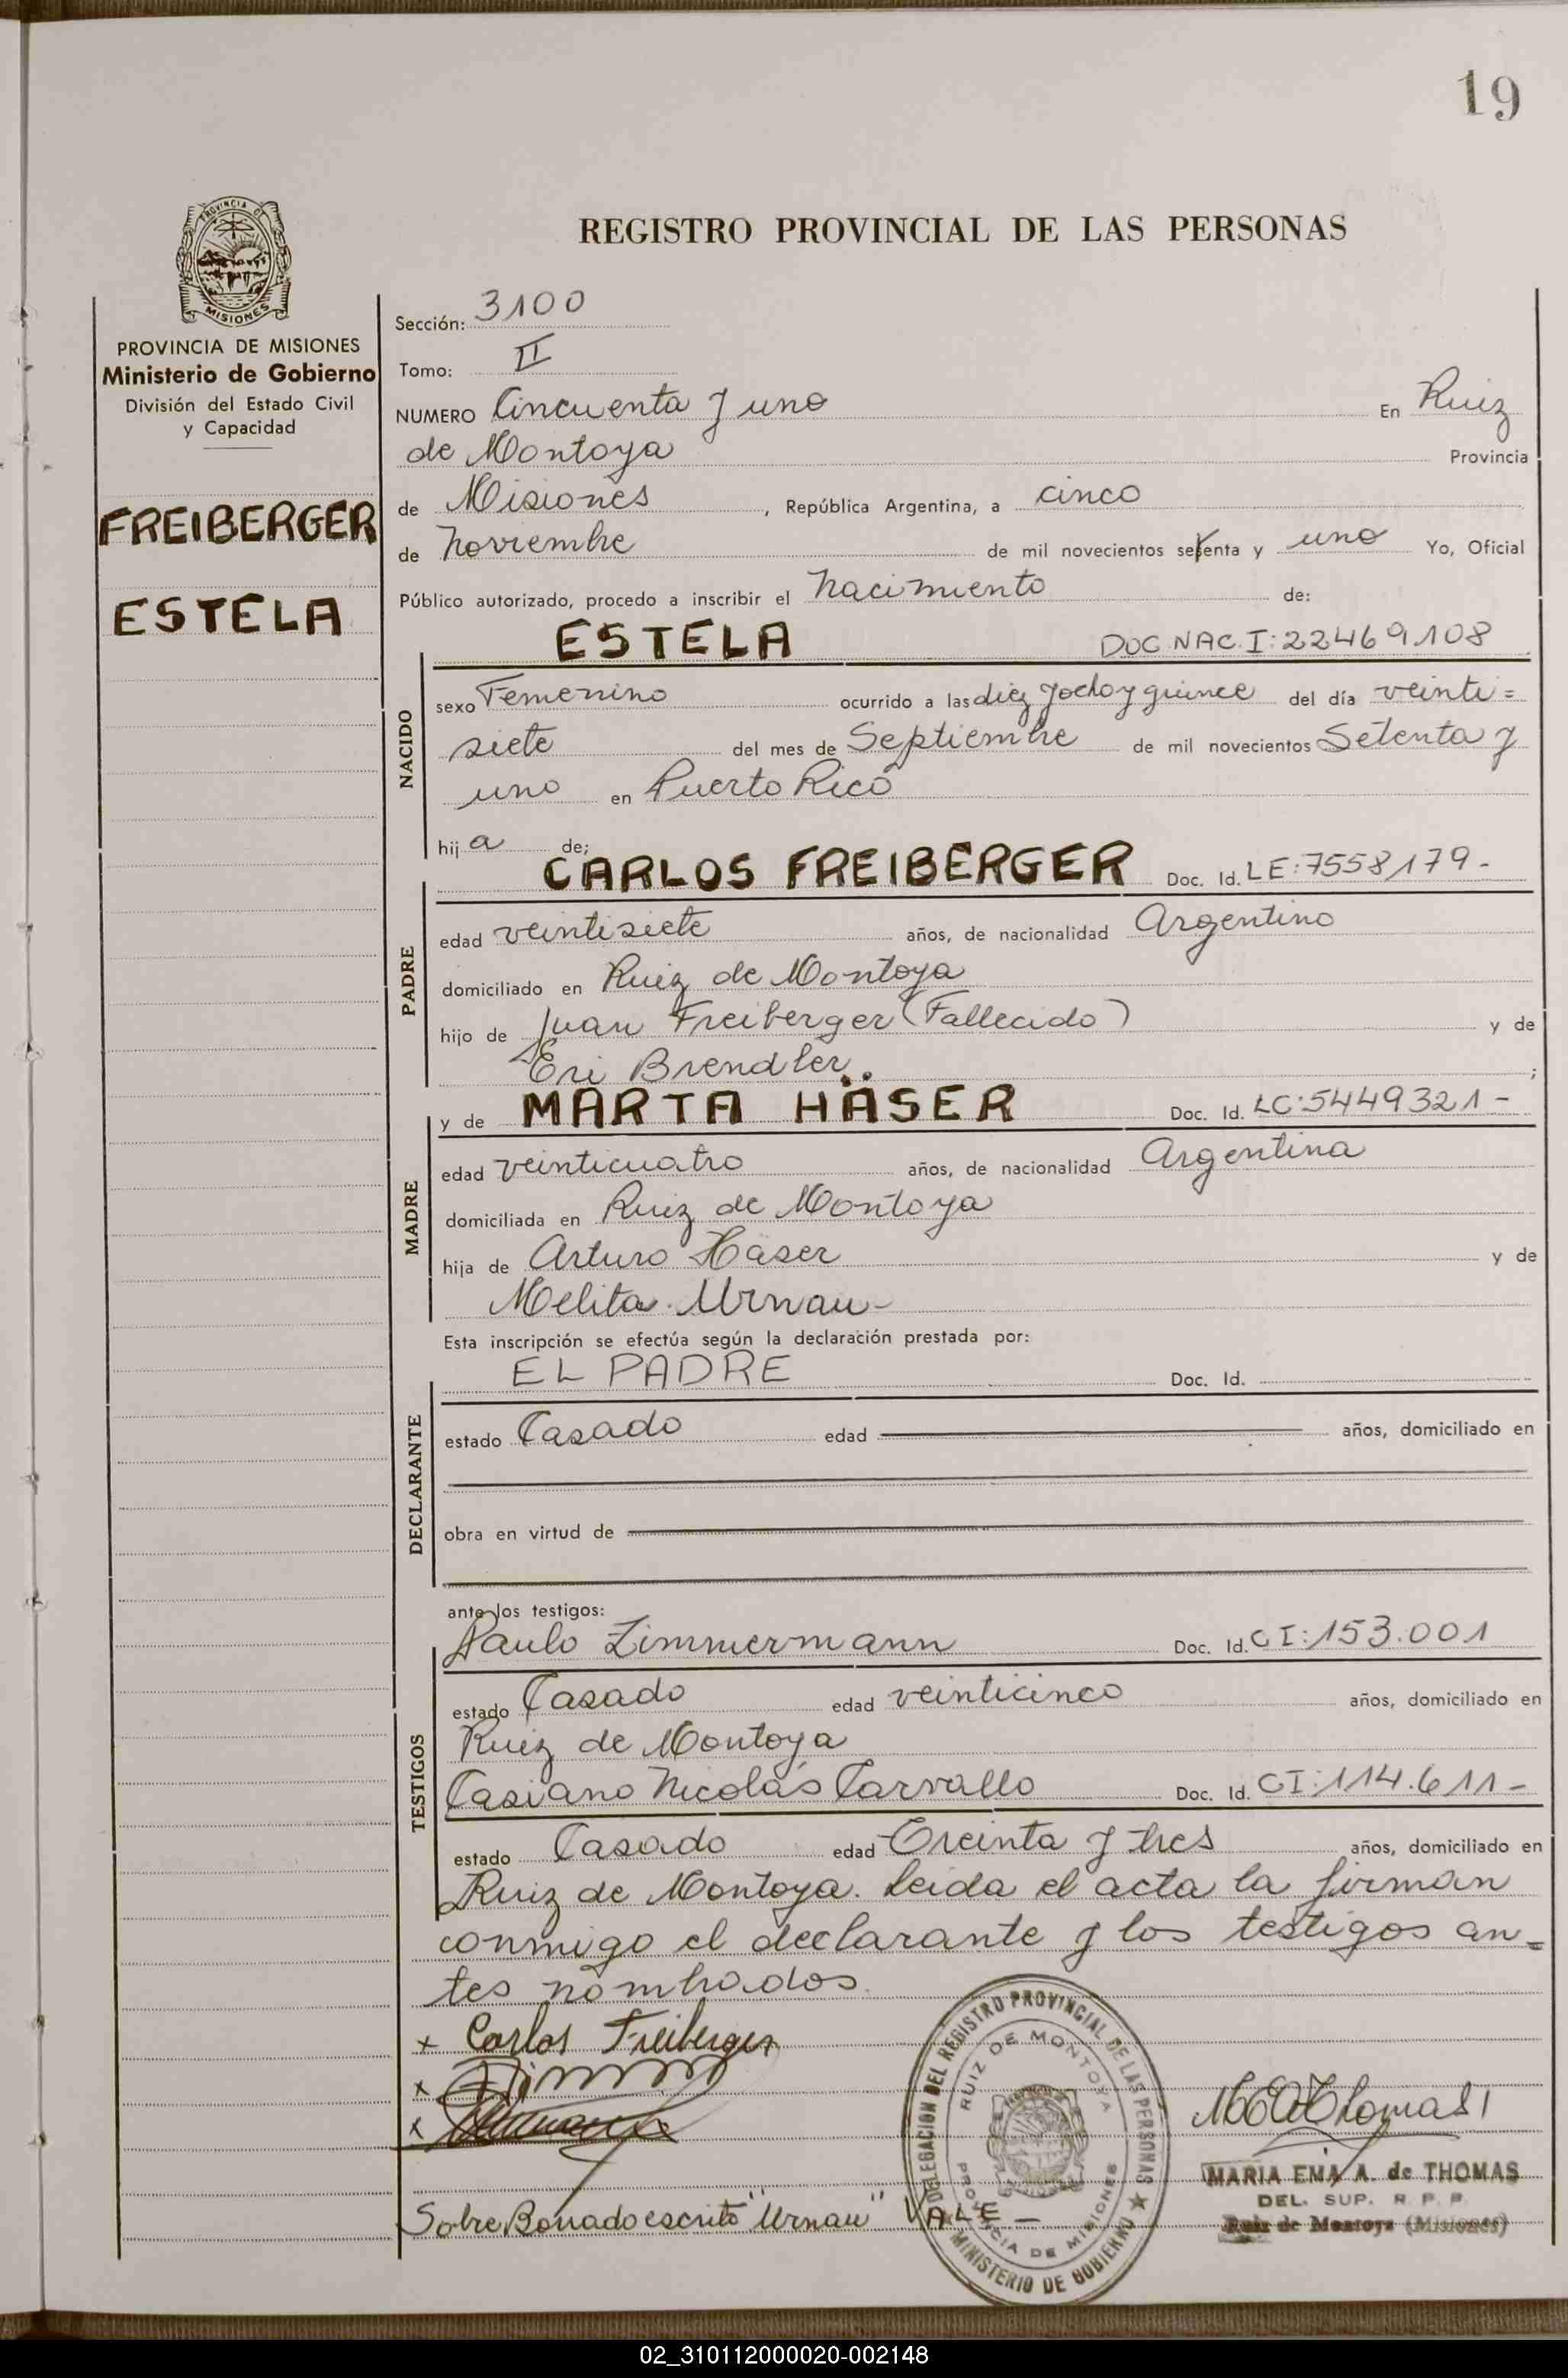 19
PROVINCIA DE
MISIONES
REGISTRO PROVINCIAL DE LAS PERSONAS
PROVINCIA DE MISIONES
Ministerio de Gobierno
División del Estado Civil
y Capacidad
FREIBERGER
ESTELA
Sección: 3100
Tomo: II
NUMERO Cincuenta y uno En Ruiz
de Montoya Provincia
de Misiones, República Argentina, a cinco
de Noviembre de mil novecientos setenta y uno Yo, Oficial
Público autorizado, procedo a inscribir el Nacimiento de:
ESTELA DOC NAC. I: 22469108
NACIDO
sexo Femenino ocurrido a las diez y ocho y quince del día veinti=
siete del mes de Septiembre de mil novecientos Setenta y
uno en Puerto Rico
hija de;
CARLOS FREIBERGER Doc. Id. LE: 7558179-
PADRE
edad veintisiete años, de nacionalidad Argentino
domiciliado en Ruiz de Montoya
hijo de Juan Freiberger (Fallecido) y de
Eri Brendler. ;
y de MARTA HÄSER Doc. Id. LC: 5449321-
MADRE
edad veinticuatro años, de nacionalidad Argentina
domiciliada en Ruiz de Montoya
hija de Arturo Häser y de
Melita Urnau-
Esta inscripción se efectúa según la declaración prestada por:
EL PADRE Doc. Id.
DECLARANTE
estado Casado edad años, domiciliado en
obra en virtud de
ante los testigos:
Paulo Zimmermann Doc. Id. CI: 153.001
TESTIGOS
estado Casado edad veinticinco años, domiciliado en
Ruiz de Montoya
Casiano Nicolás Carvallo Doc. Id. CI: 114.611-
estado Casado edad Treinta y tres años, domiciliado en
Ruiz de Montoya. Leida el acta la firman
conmigo el declarante y los testigos an=
tes nombrados.
x Carlos Freiberger
x
x
DELEGACION DEL REGISTRO PROVINCIAL DE LAS PERSONAS
RUIZ DE MONTOYA
PROVINCIA DE MISIONES
MINISTERIO DE GOBIERNO
MARIA EMA A. de THOMAS
DEL. SUP. R. P. P.
Ruiz de Montoya (Misiones)
Sobre Borrado escrito "Urnau" VALE-
02_310112000020-002148